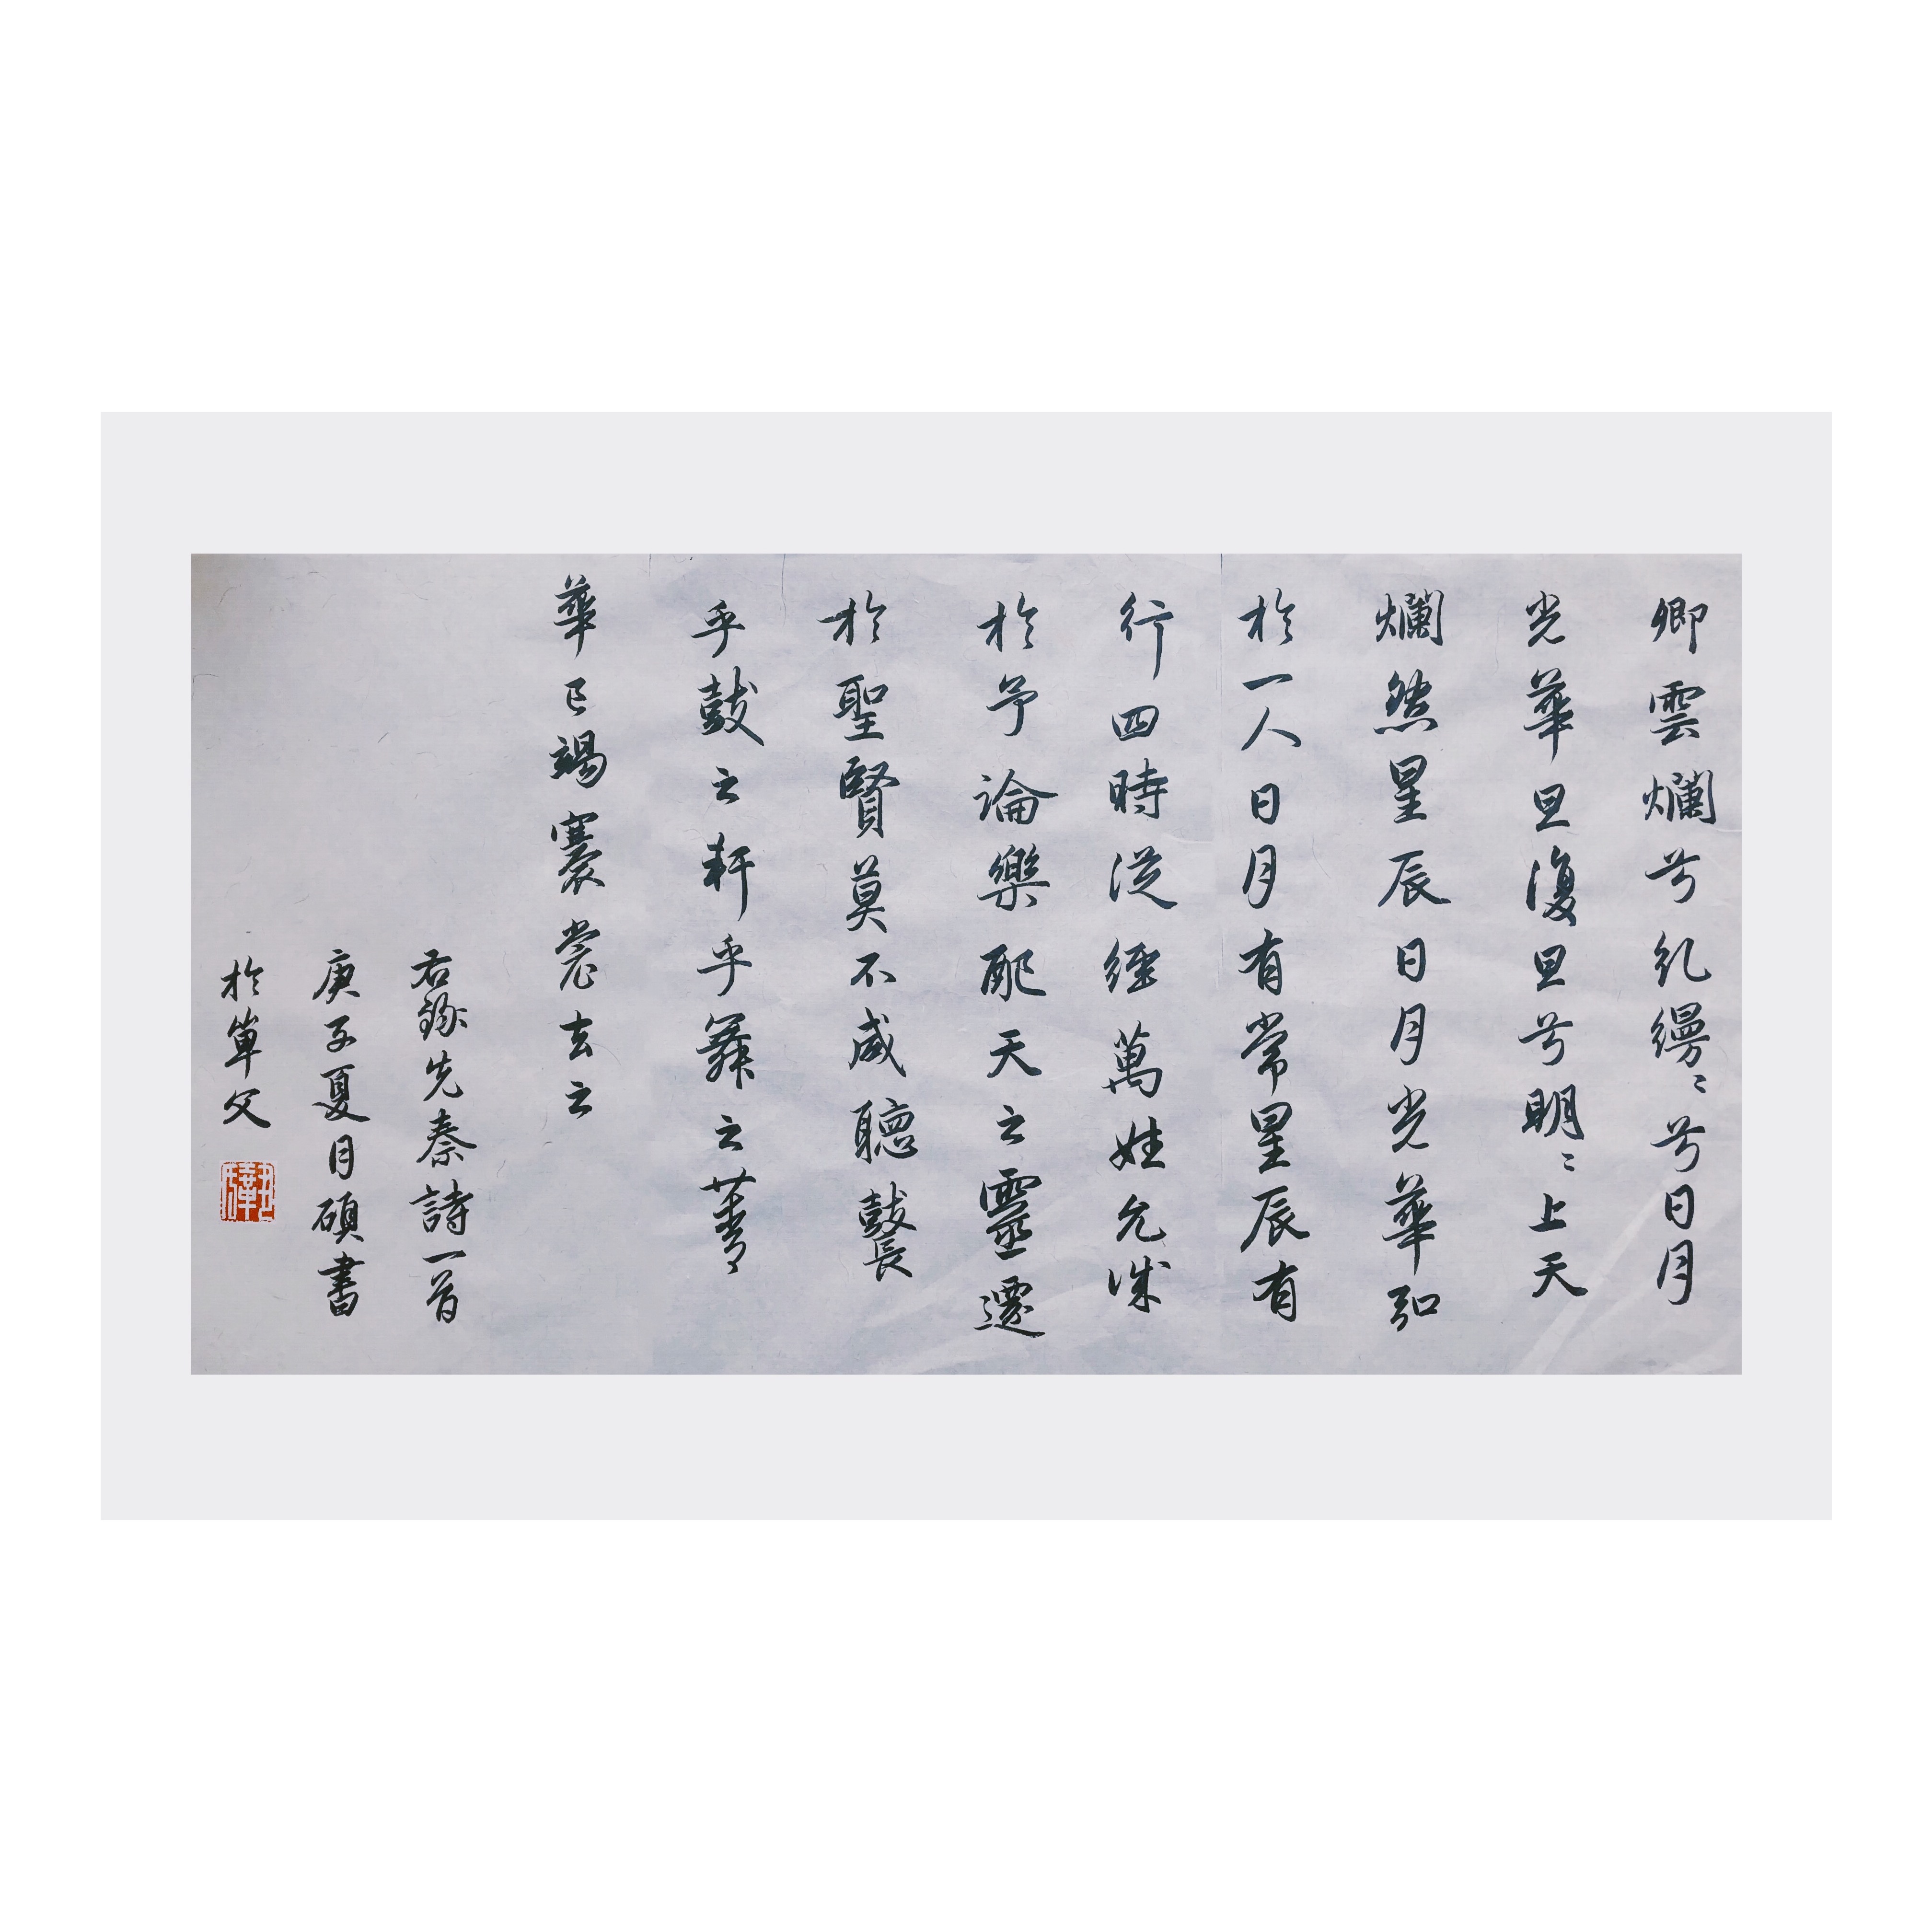 卿雲爛兮糺縵〻兮日月
光華旦復旦兮明〻上天
爛然星辰日月光華弘
於一人日月有常星辰有
行四時從經萬姓允誠
於予論樂配天之靈遷
於聖賢莫不咸聽鼚
乎鼓之軒乎舞之菁
華已竭褰裳去之
右録先秦詩一首
庚子夏月碩書
於單父